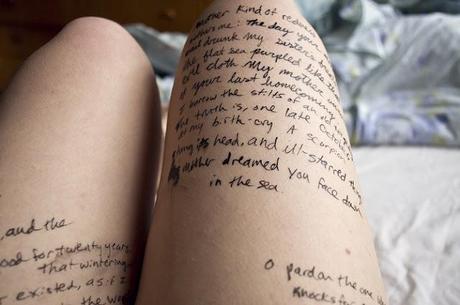 nother kind of redness
me: the day your
drunk my sister's
the flat sea purpled like
cloth My mother un
your last homecoming
I borrow the stilts of an old
the truth is, one late October
at my birth-cry A scorpion
stung its head, and ill-starred thing
mother dreamed you face down
in the sea.
, and the
ood for twenty years
that wintering
existed, as if I
in the
O pardon the one
knocks for